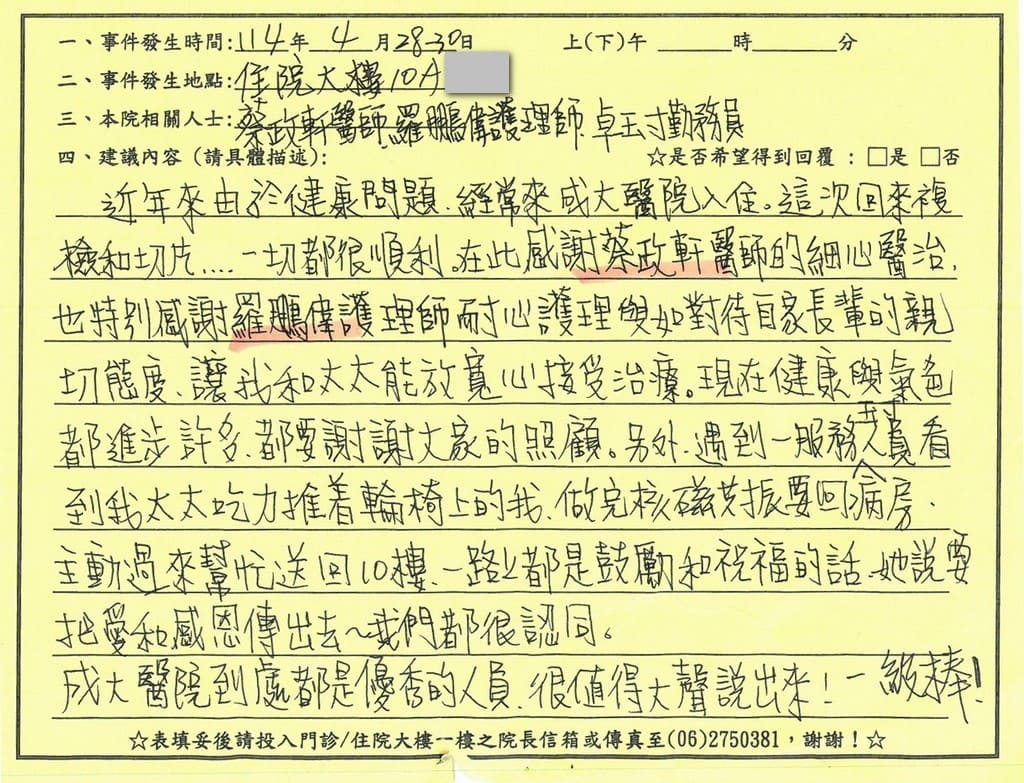 一、事件發生時間:114年4月28-30日 上(下)午____時____分
二、事件發生地點:住院大樓10A
三、本院相關人士:蔡政軒醫師.羅鵬偉護理師.卓玉寸勤務員
四、建議內容(請具體描述): ☆是否希望得到回覆:□是 □否
近年來由於健康問題.經常來成大醫院入住。這次回來複
檢和切片....一切都很順利。在此感謝蔡政軒醫師的細心醫治,
也特別感謝羅鵬偉護理師耐心護理與如對待自家長輩的親
切態度、讓我和太太能放寬心接受治療。現在健康與氣色
都進步許多、都要謝謝大家的照顧。另外.遇到一服務人員看
到我太太吃力推着輪椅上的我、做完核磁共振要回病房.
主動過來幫忙送回10樓、一路上都是鼓勵和祝福的話、她說要
把愛和感恩傳出去~我們都很認同。
成大醫院到處都是優秀的人員、很值得大聲說出來!一級棒!
☆表填妥後請投入門診/住院大樓一樓之院長信箱或傳真至(06)2750381,謝謝!☆